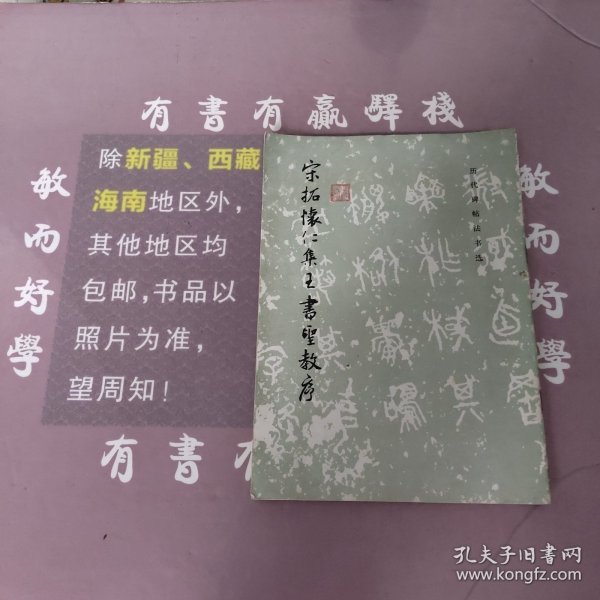 有書有贏驛棧
敏而好學
除新疆、西藏
海南地区外，
其他地区均
包邮，书品以
照片为准，
望周知！
历代碑帖法书选
宋拓懷仁集王書聖教序
敏而好學
有書有
孔夫子旧书网
www.kongfz.com